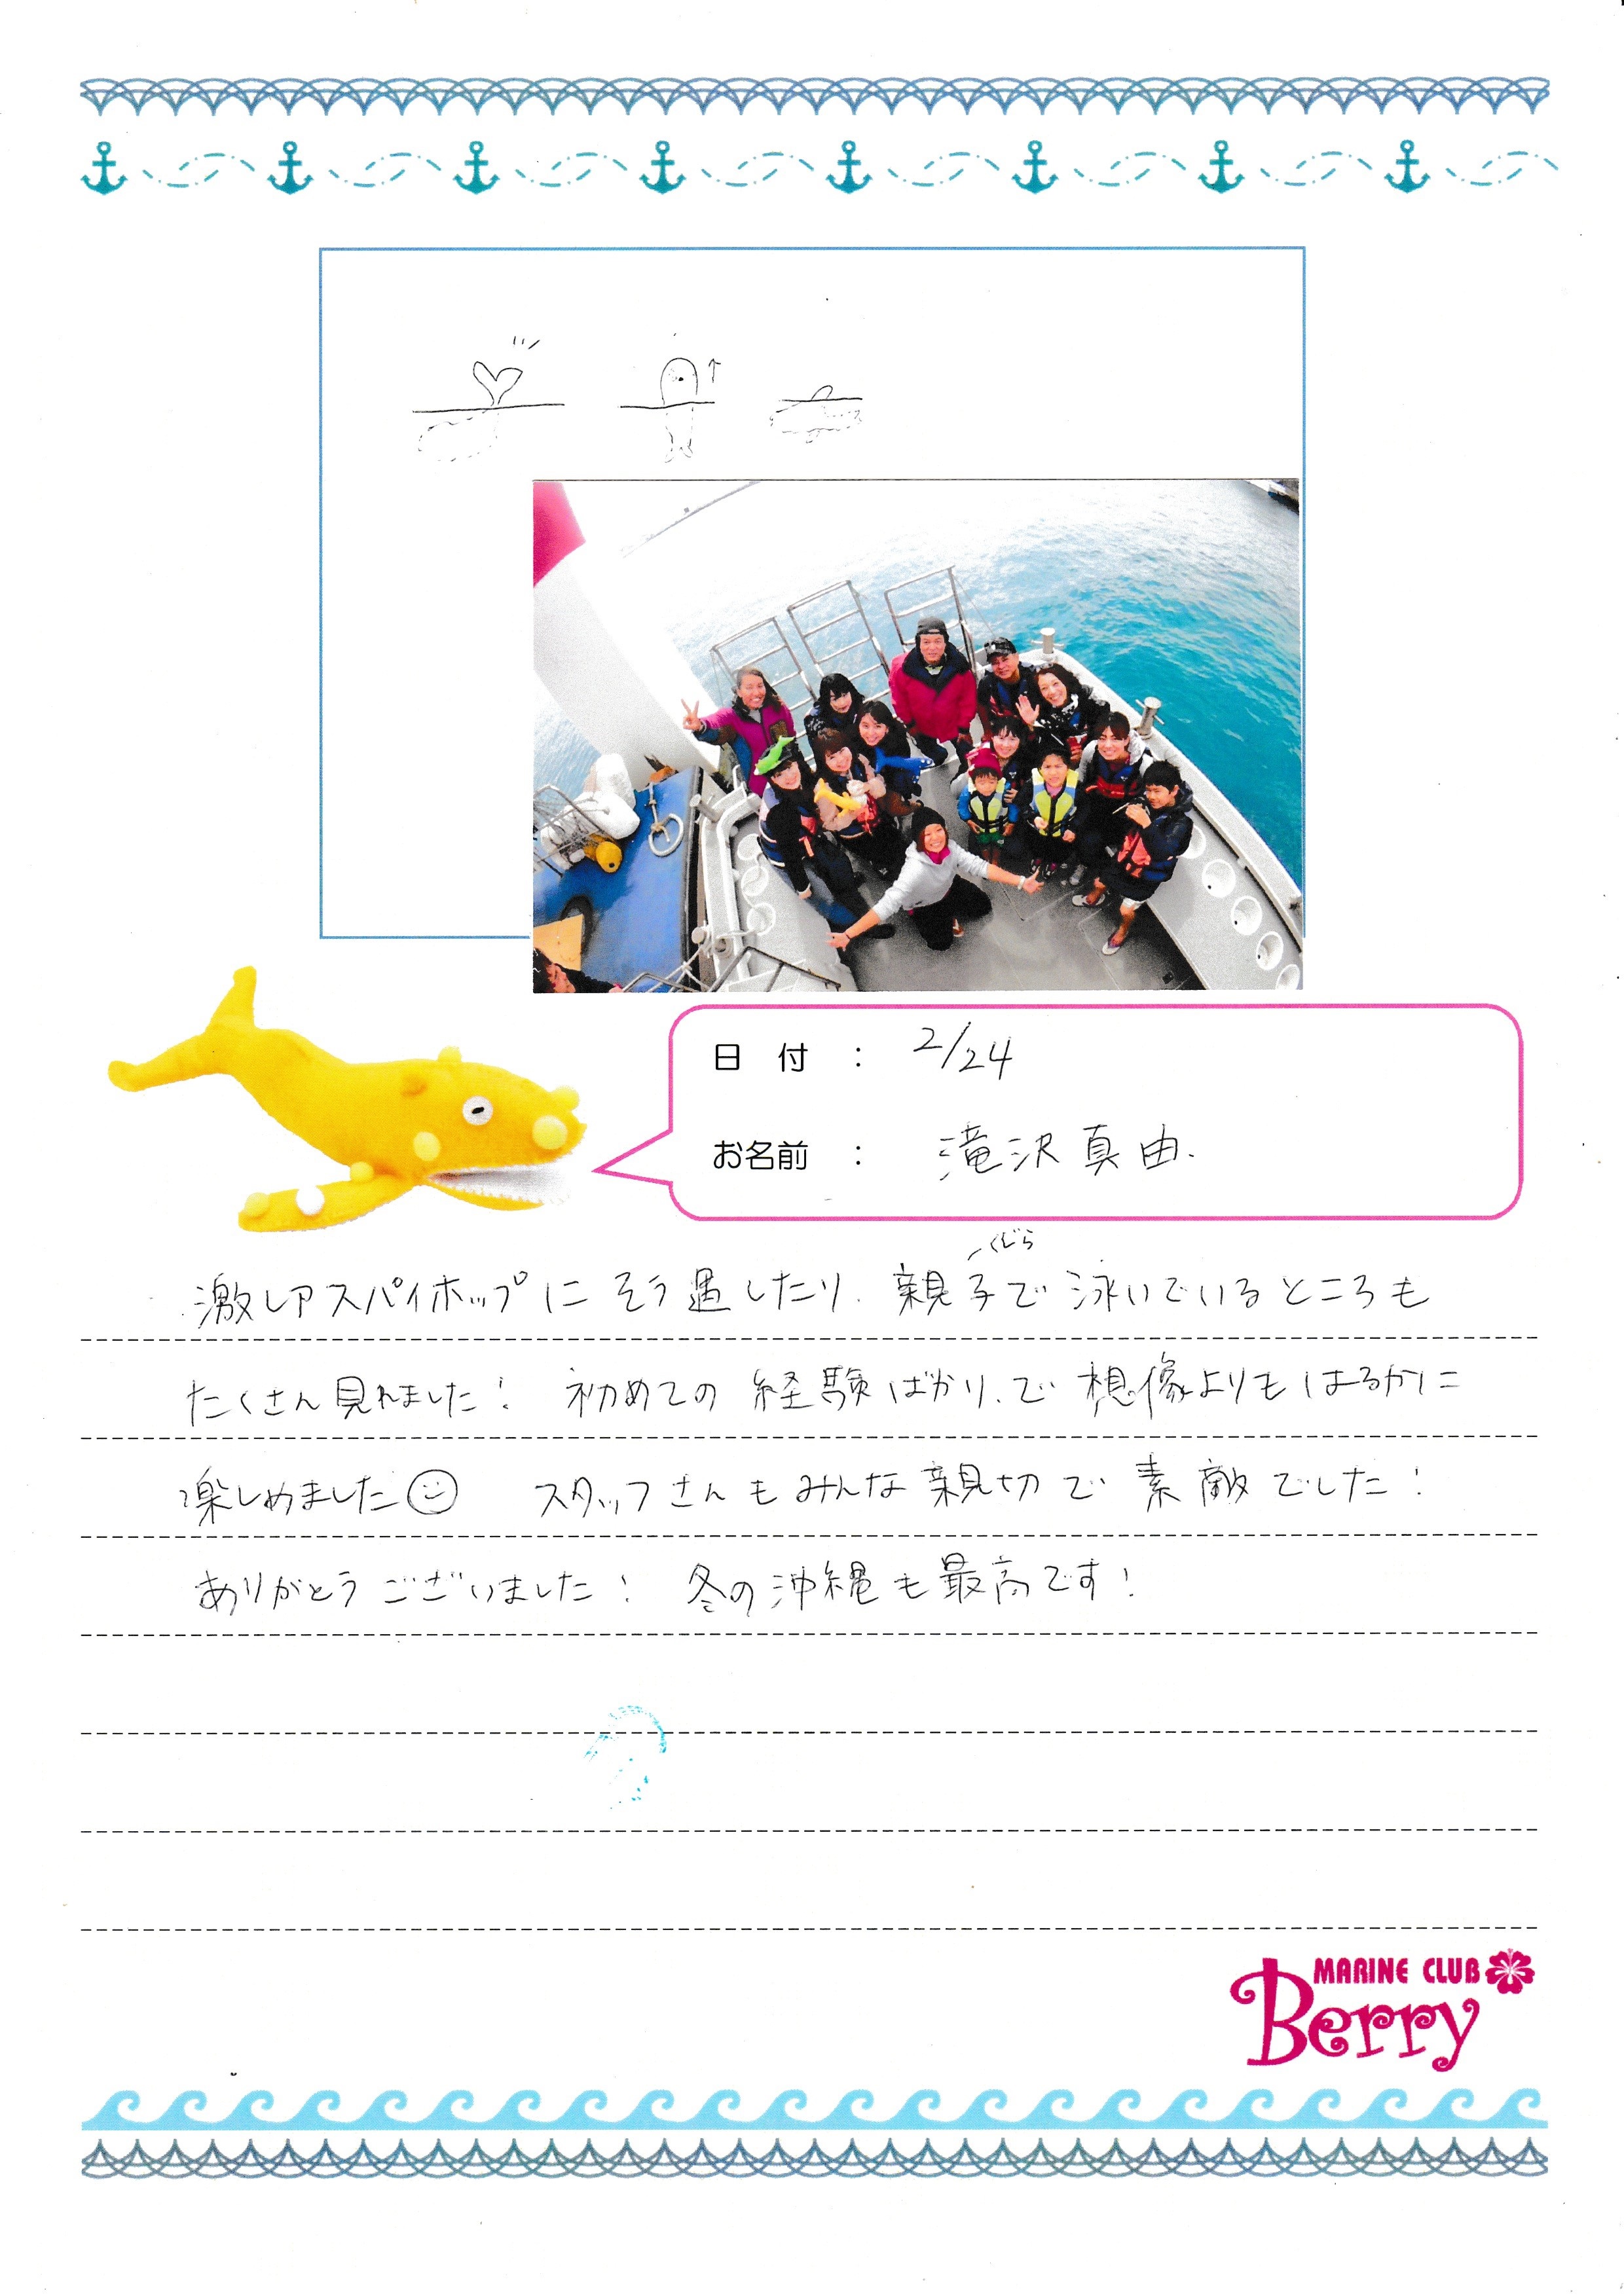 日 付 : 2/24
お名前 : 滝沢真由.
くじら
激レアスパイホップにそう遇したり、親子で泳いでいるところも
たくさん見れました! 初めての経験ばかりで想像よりもはるかに
楽しめました☺ スタッフさんもみんな親切で素敵でした!
ありがとうございました! 冬の沖縄も最高です!
MARINE CLUB
Berry